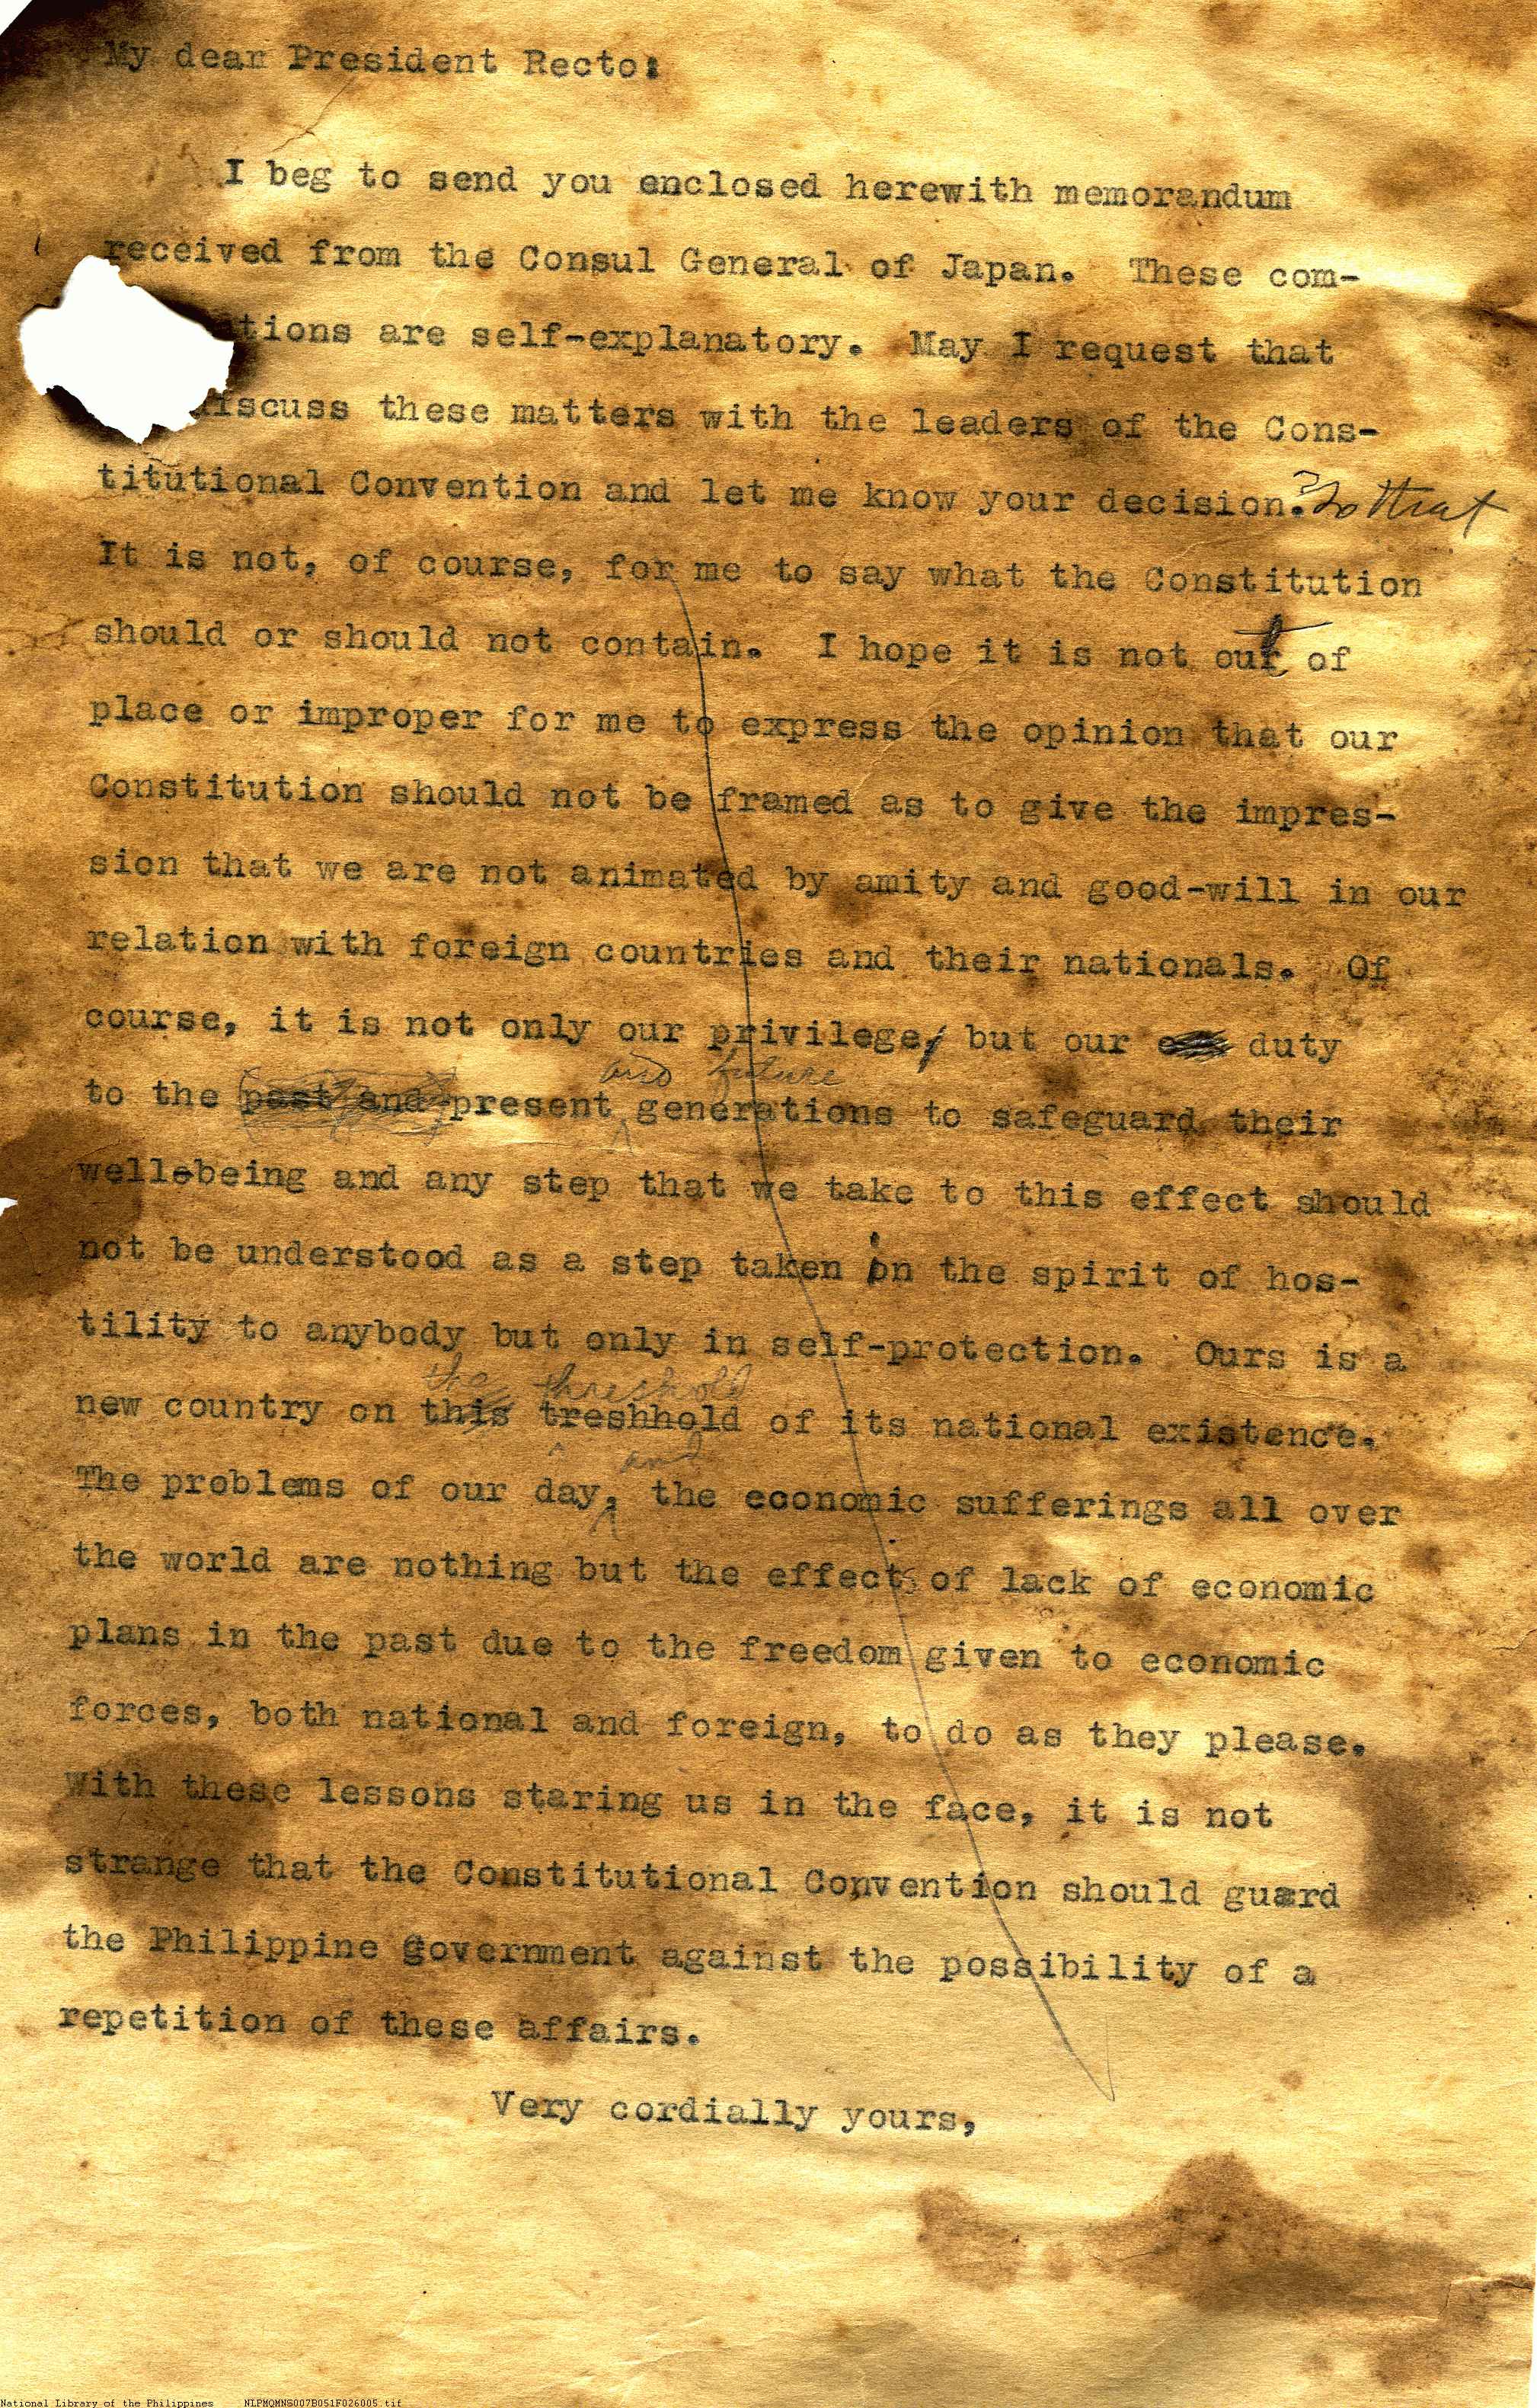 My dear President Recto:
I beg to send you enclosed herewith memorandum
received from the Consul General of Japan. These com-
tions are self-explanatory. May I request that
discuss these matters with the leaders of the Cons-
titutional Convention and let me know your decision. so that
It is not, of course, for me to say what the Constitution
should or should not contain. I hope it is not out of
place or improper for me to express the opinion that our
Constitution should not be framed as to give the impres-
sion that we are not animated by amity and good-will in our
relation with foreign countries and their nationals. Of
course, it is not only our privilege, but our duty
and future
to the past and present generations to safeguard their
well-being and any step that we take to this effect should
not be understood as a step taken in the spirit of hos-
tility to anybody but only in self-protection. Ours is a
the threshold
new country on this treshhold of its national existence.
and
The problems of our day, the economic sufferings all over
the world are nothing but the effects of lack of economic
plans in the past due to the freedom given to economic
forces, both national and foreign, to do as they please.
With these lessons staring us in the face, it is not
strange that the Constitutional Convention should guard
the Philippine Government against the possibility of a
repetition of these affairs.
Very cordially yours,
National Library of the Philippines NLPMQMNS007B051F026005.tif